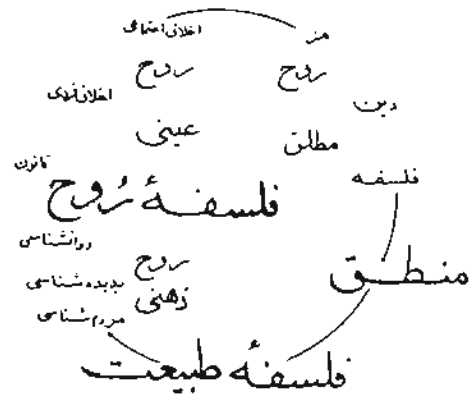 اخلاق اجتماعی
هنر
روح
روح
اخلاق فردی
دین
عینی
مطلق
قانون
فلسفه
فلسفهٔ رُوح
روانشناسی
روح
منطق
پدیده شناسی
ذهنی
مردم شناسی
فلسفهٔ طبیعت